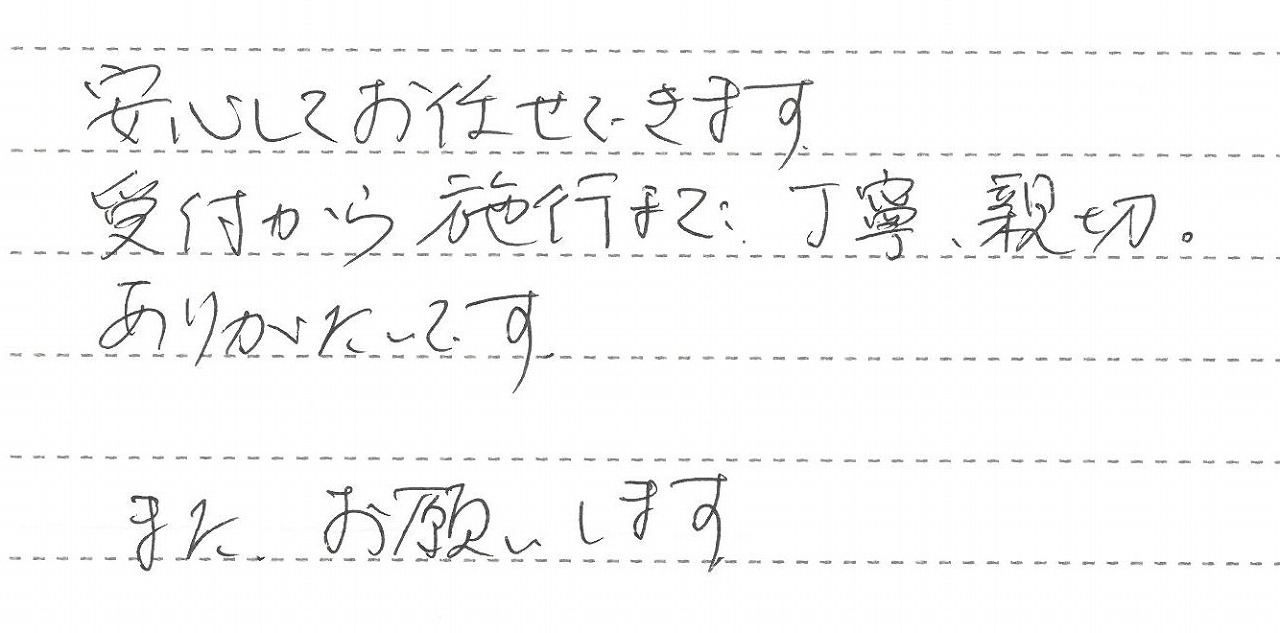 安心してお任せできます
受付から施行まで、丁寧、親切。
ありがたいです
また お願いします